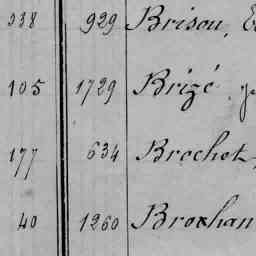 238 929 Brison,
105 1729 Brizé,
177 634 Brochet,
40 1260 Brochan